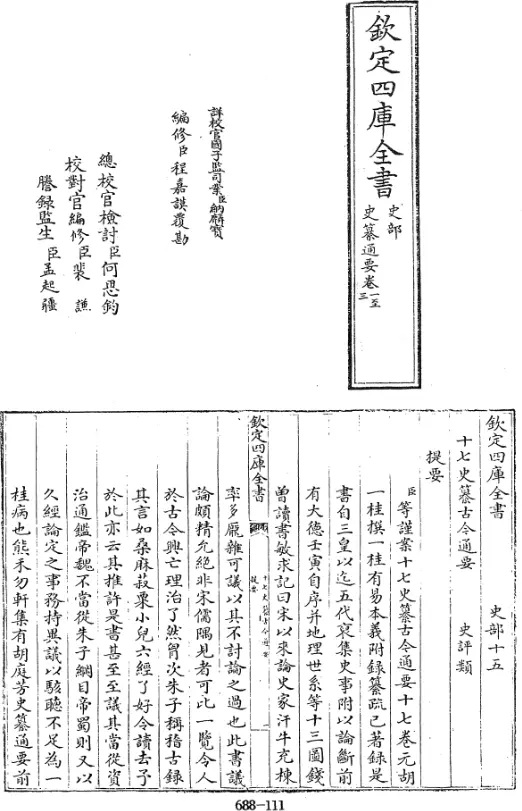 欽定四庫全書
史部
史纂通要卷一至三
詳校官國子監司業臣納麟寶
編修臣程嘉謨覆勘
總校官檢討臣何思鈞
校對官編修臣裴謙
謄録監生臣孟起疆
欽定四庫全書 史部十五
十七史纂古今通要 史評類
提要
臣等謹案十七史纂古今通要十七卷元胡
一桂撰一桂有易本義附録纂疏已著録是
書自三皇以迄五代裒集史事附以論斷前
有大德壬寅自序并地理世系等十三圖錢
曽讀書敏求記曰宋以來論史家汗牛充棟
欽定四庫全書
十七史纂古今通要
提要
率多龎雜可議以其不討論之過也此書議
論頗精允絕非宋儒隅見者可比一覽令人
於古今興亡理治了然胷次朱子稱稽古録
其言如桑麻菽粟小兒六經了好令讀去予
於此亦云其推許是書甚至至議其當從資
治通鑑帝魏不當從朱子綱目帝蜀則又以
久經論定之事務持異議以駭聽不足為一
桂病也熊禾勿軒集有胡庭芳史纂通要前
688-111